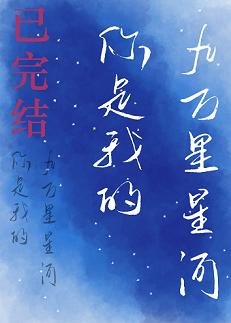 已完结
九万星星河
你是我的
九万星星河
你是我的